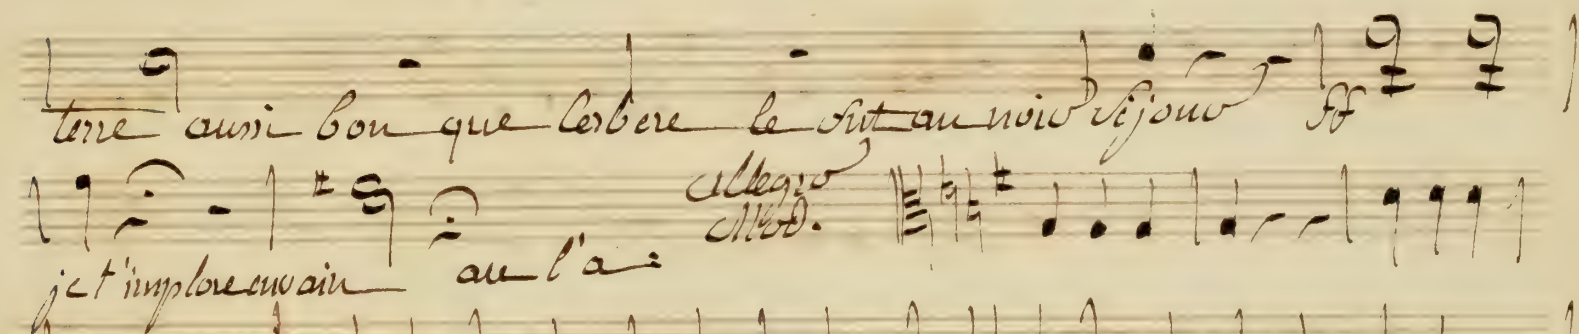 terre aussi bon que Cerbere le fut au noir séjour ff
allegro
Mod.
je t'implore en vain au l'a